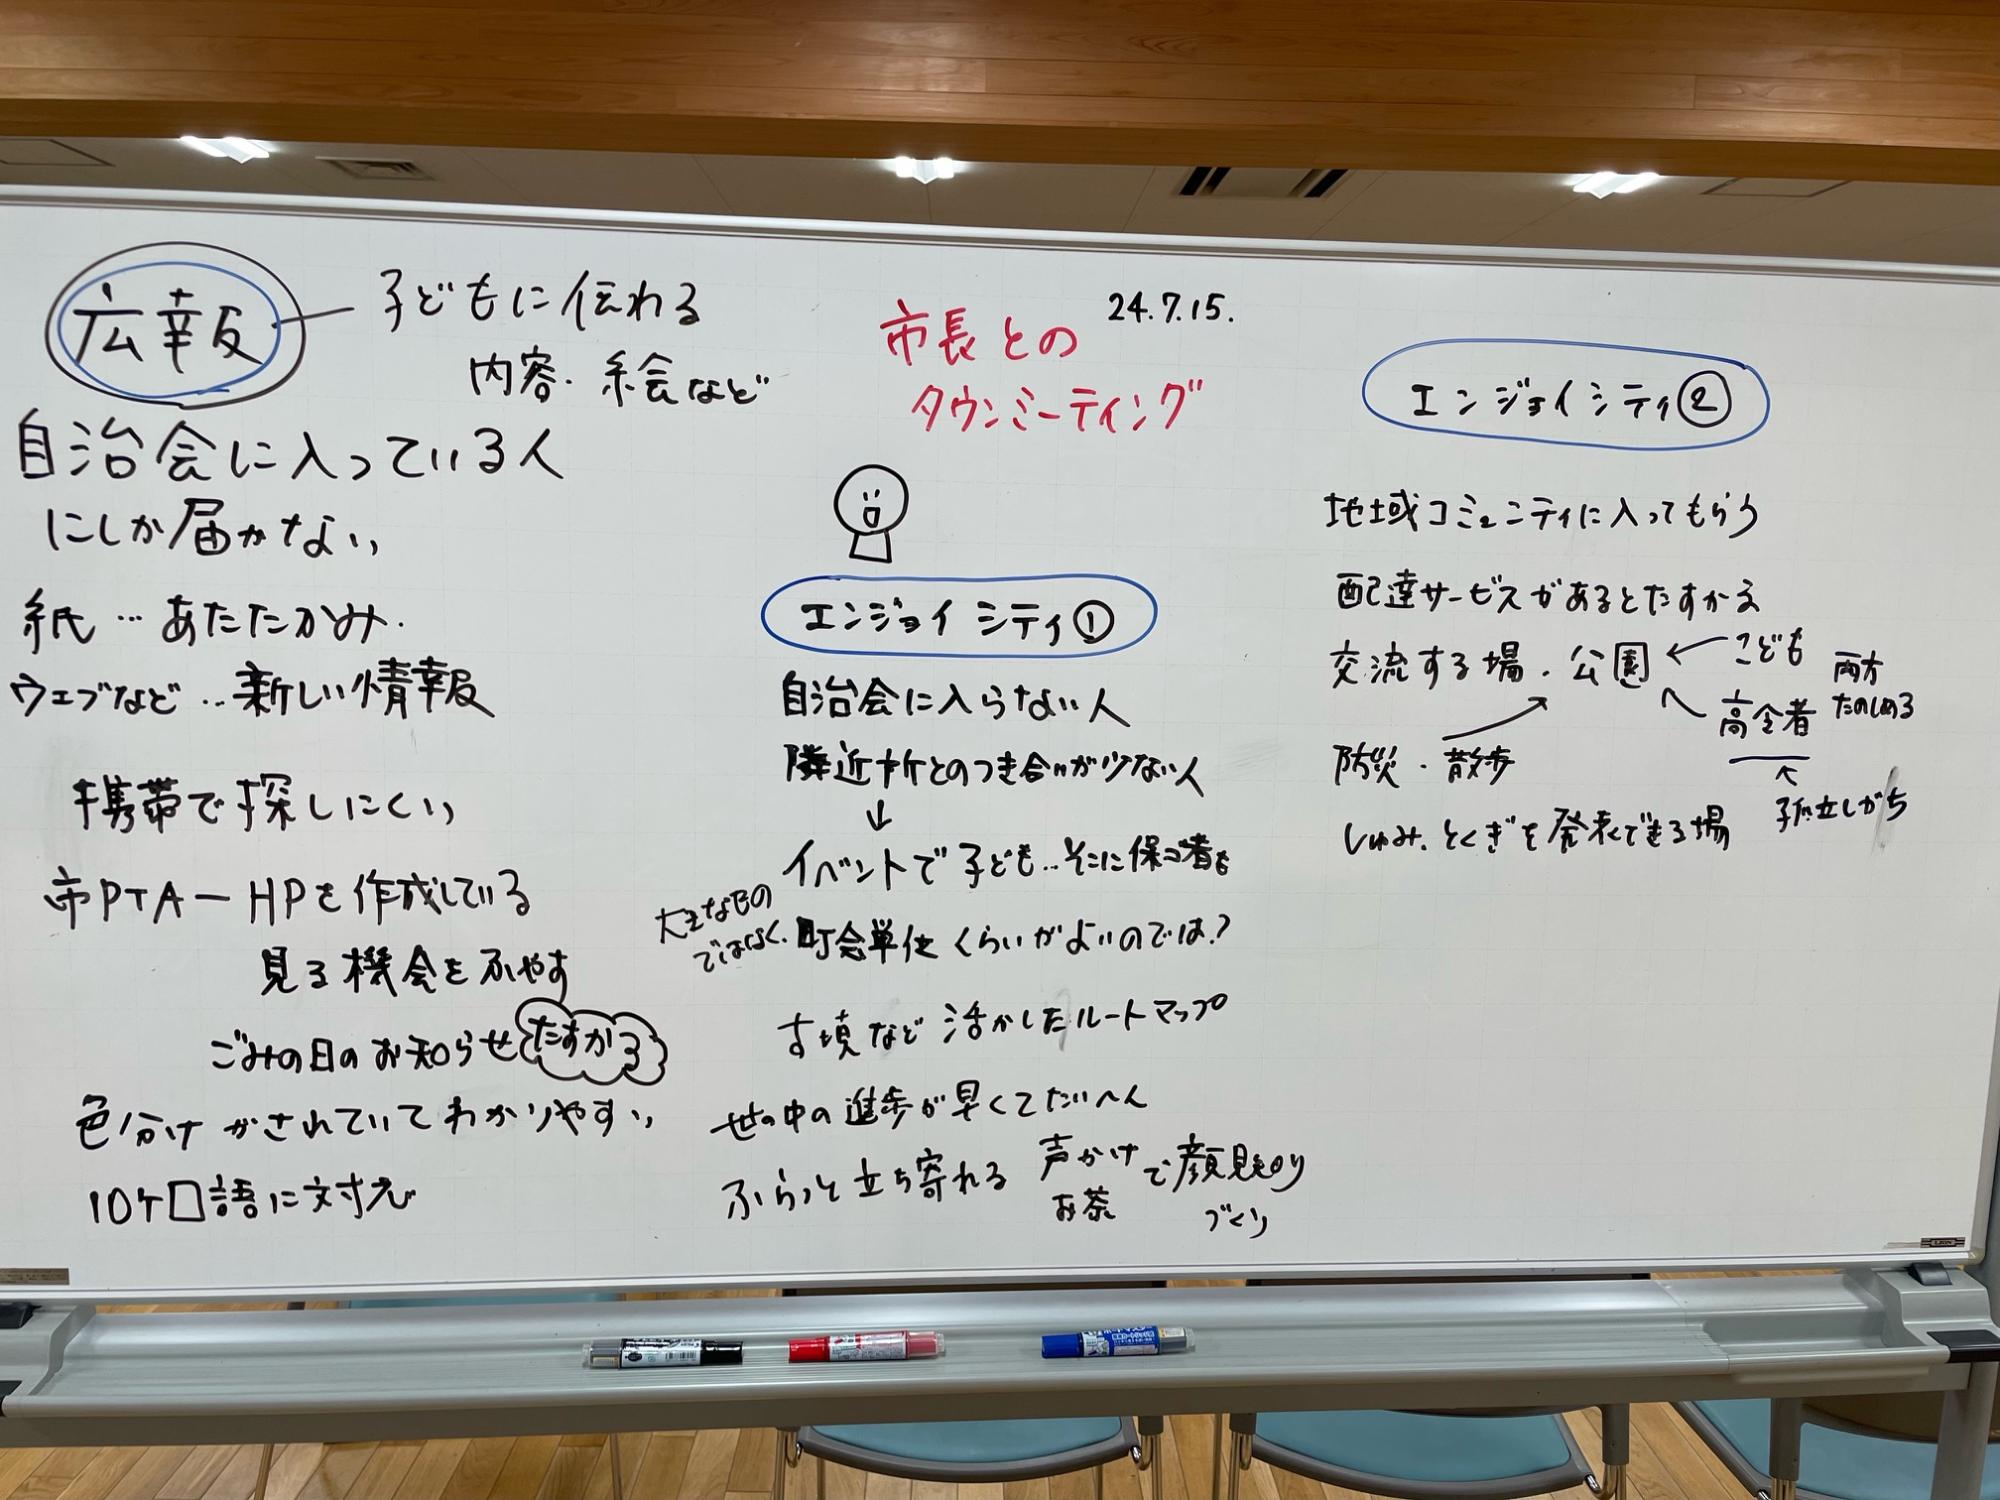 広報
子どもに伝わる
内容・絵会など
自治会に入っている人
にしか届かない
紙…あたたかみ.
ウェブなど…新しい情報
携帯で探しにくい
市PTA－HPを作成している
見る機会をふやす
ごみの日のお知らせ たすかる
色分けがされていてわかりやすい
10ケ口語に対応
24.7.15.
市長との
タウンミーティング
エンジョイシティ①
自治会に入らない人
隣近所とのつき合いが少ない人
↓
イベントで子ども…そこに保ゴ者も
大きなものではなく、町会単位くらいがよいのでは?
古墳など活かしたルートマップ
世の中の進歩が早くてたいへん
ふらっと立ち寄れる 声かけ お茶 で顔見知りづくり
エンジョイシティ②
地域コミュニティに入ってもらう
配達サービスがあるとたすかる
交流する場・公園 ← こども
高令者
両方
たのしめる
孤立しがち
防災・散歩
しゅみ、とくぎを発表できる場